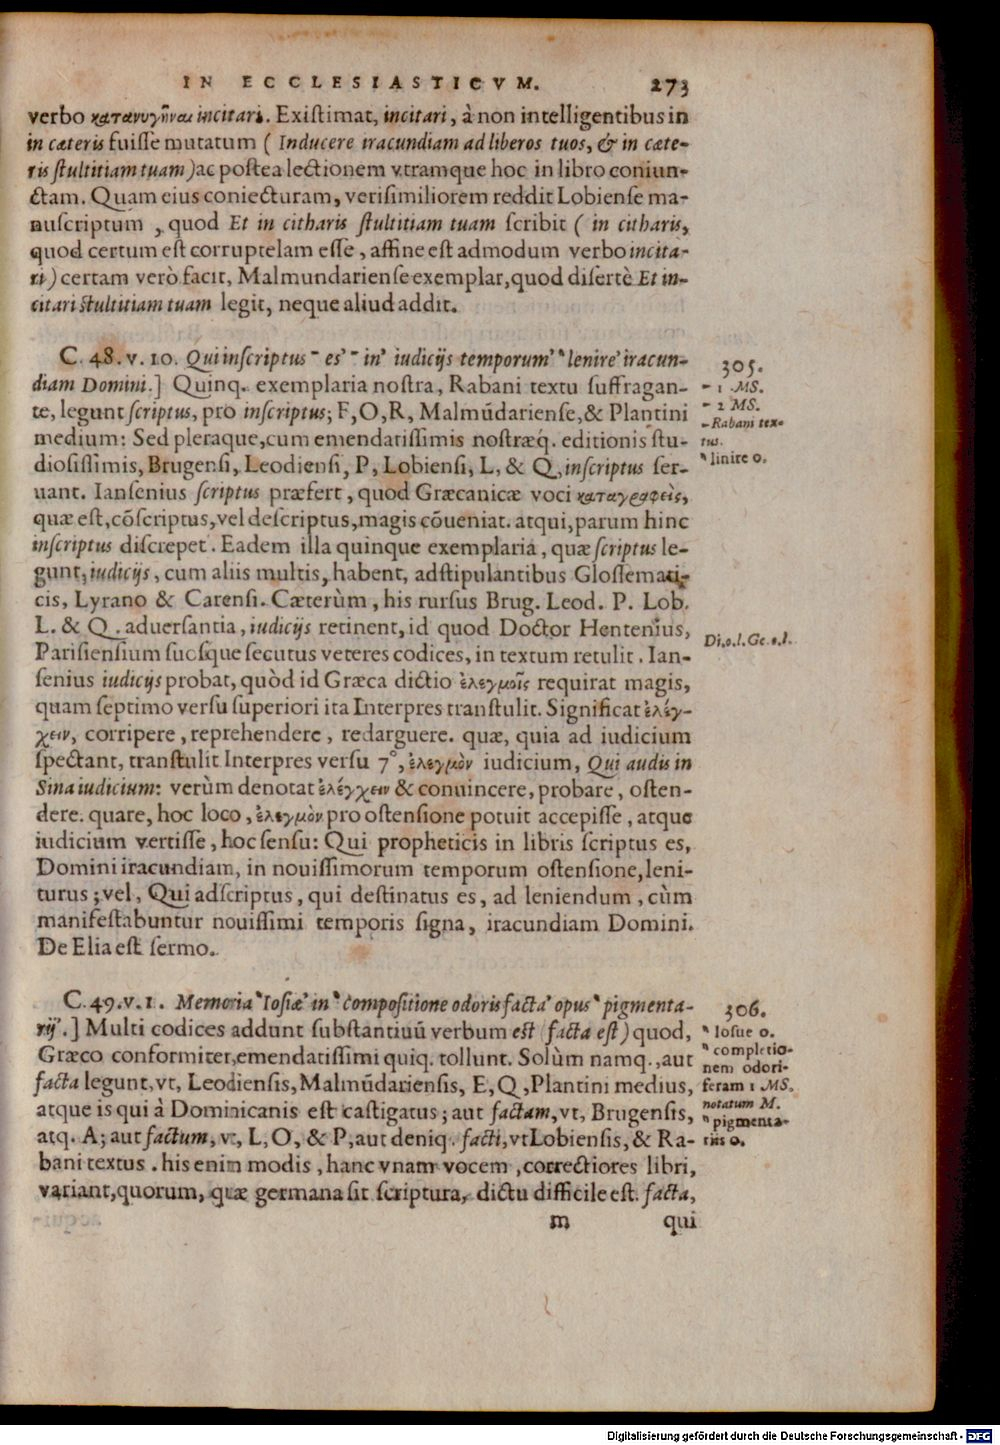 IN ECCLESIASTICVM. 273
verbo κατανυγῆναι incitari. Existimat, incitari, à non intelligentibus in
in cæteris fuisse mutatum ( Inducere iracundiam ad liberos tuos, & in cæte-
ris stultitiam tuam ) ac postea lectionem vtramque hoc in libro coniun-
ctam. Quam eius coniecturam, verisimiliorem reddit Lobiense ma-
nuscriptum , quod Et in citharis stultitiam tuam scribit ( in citharis,
quod certum est corruptelam esse , affine est admodum verbo incita-
ri ) certam verò facit, Malmundariense exemplar, quod disertè Et in-
citari stultitiam tuam legit, neque aliud addit.
C. 48. v. 10. Qui inscriptus ⁻ es' ⁻ in' iudicijs temporum' ‟lenire' iracun-
diam Domini.] Quinq. exemplaria nostra, Rabani textu suffragan-
te, legunt scriptus, pro inscriptus; F, O, R, Malmūdariense, & Plantini
medium: Sed pleraque, cum emendatissimis nostræq. editionis stu-
diosissimis, Brugensi, Leodiensi, P, Lobiensi, L, & Q, inscriptus ser-
uant. Iansenius scriptus præfert, quod Græcanicæ voci καταγραφεὶς,
quæ est, cōscriptus, vel descriptus, magis cōueniat. atqui, parum hinc
inscriptus discrepet. Eadem illa quinque exemplaria, quæ scriptus le-
gunt, iudicijs, cum aliis multis, habent, adstipulantibus Glossemati-
cis, Lyrano & Carensi. Cæterùm, his rursus Brug. Leod. P. Lob.
L. & Q. aduersantia, iudicijs retinent, id quod Doctor Hentenius,
Parisiensium suosque secutus veteres codices, in textum retulit. Ian-
senius iudicijs probat, quòd id Græca dictio ἐλεγμοῖς requirat magis,
quam septimo versu superiori ita Interpres transtulit. Significat ἐλέγ-
χειν, corripere, reprehendere, redarguere. quæ, quia ad iudicium
spectant, transtulit Interpres versu 7°, ἐλεγμὸν iudicium, Qui audis in
Sina iudicium: verùm denotat ἐλέγχειν & conuincere, probare, osten-
dere. quare, hoc loco, ἐλεγμὸν pro ostensione potuit accepisse, atque
iudicium vertisse, hoc sensu: Qui propheticis in libris scriptus es,
Domini iracundiam, in nouissimorum temporum ostensione, leni-
turus; vel, Qui adscriptus, qui destinatus es, ad leniendum, cùm
manifestabuntur nouissimi temporis signa, iracundiam Domini.
De Elia est sermo.
305.
⁻ 1 .MS.
⁻ 2 MS.
⁻ Rabani tex-
tus.
‟ linire o.
Di.o.l.Gc.o.l.
C. 49. v. 1. Memoria ‟Iosiæ' in ‟compositione odoris facta' opus ‟pigmenta-
rij'.] Multi codices addunt substantiuū verbum est ( facta est ) quod,
Græco conformiter, emendatissimi quiq. tollunt. Solùm namq., aut
facta legunt, vt, Leodiensis, Malmūdariensis, E, Q, Plantini medius,
atque is qui à Dominicanis est castigatus; aut factam, vt, Brugensis,
atq. A; aut factum, vt, L, O, & P, aut deniq. facti, vt Lobiensis, & Ra-
bani textus. his enim modis, hanc vnam vocem, correctiores libri,
variant, quorum, quæ germana sit scriptura, dictu difficile est. facta,
306.
‟ Iosue o.
‟ completio-
nem odori-
feram 1 MS.
notatum M.
‟ pigmenta-
riis o.
m qui
Digitalisierung gefördert durch die Deutsche Forschungsgemeinschaft - DFG